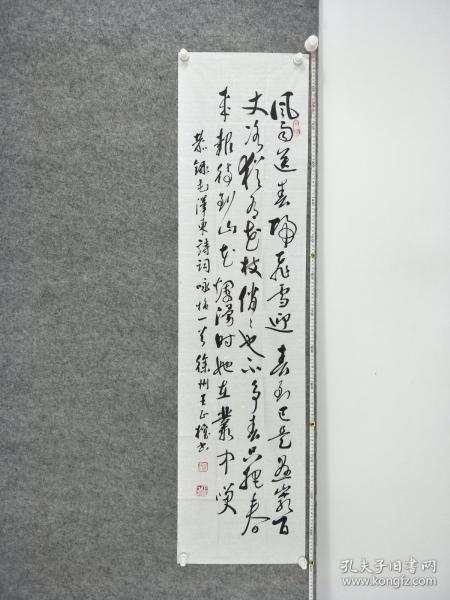 风雨送春归飞雪迎春到已是悬崖百
丈冰犹有花枝俏俏也不争春只把春
来报待到山花烂漫时她在丛中笑
恭录毛泽东诗词咏梅一首徐州王正权书
孔夫子旧书网
www.kongfz.com